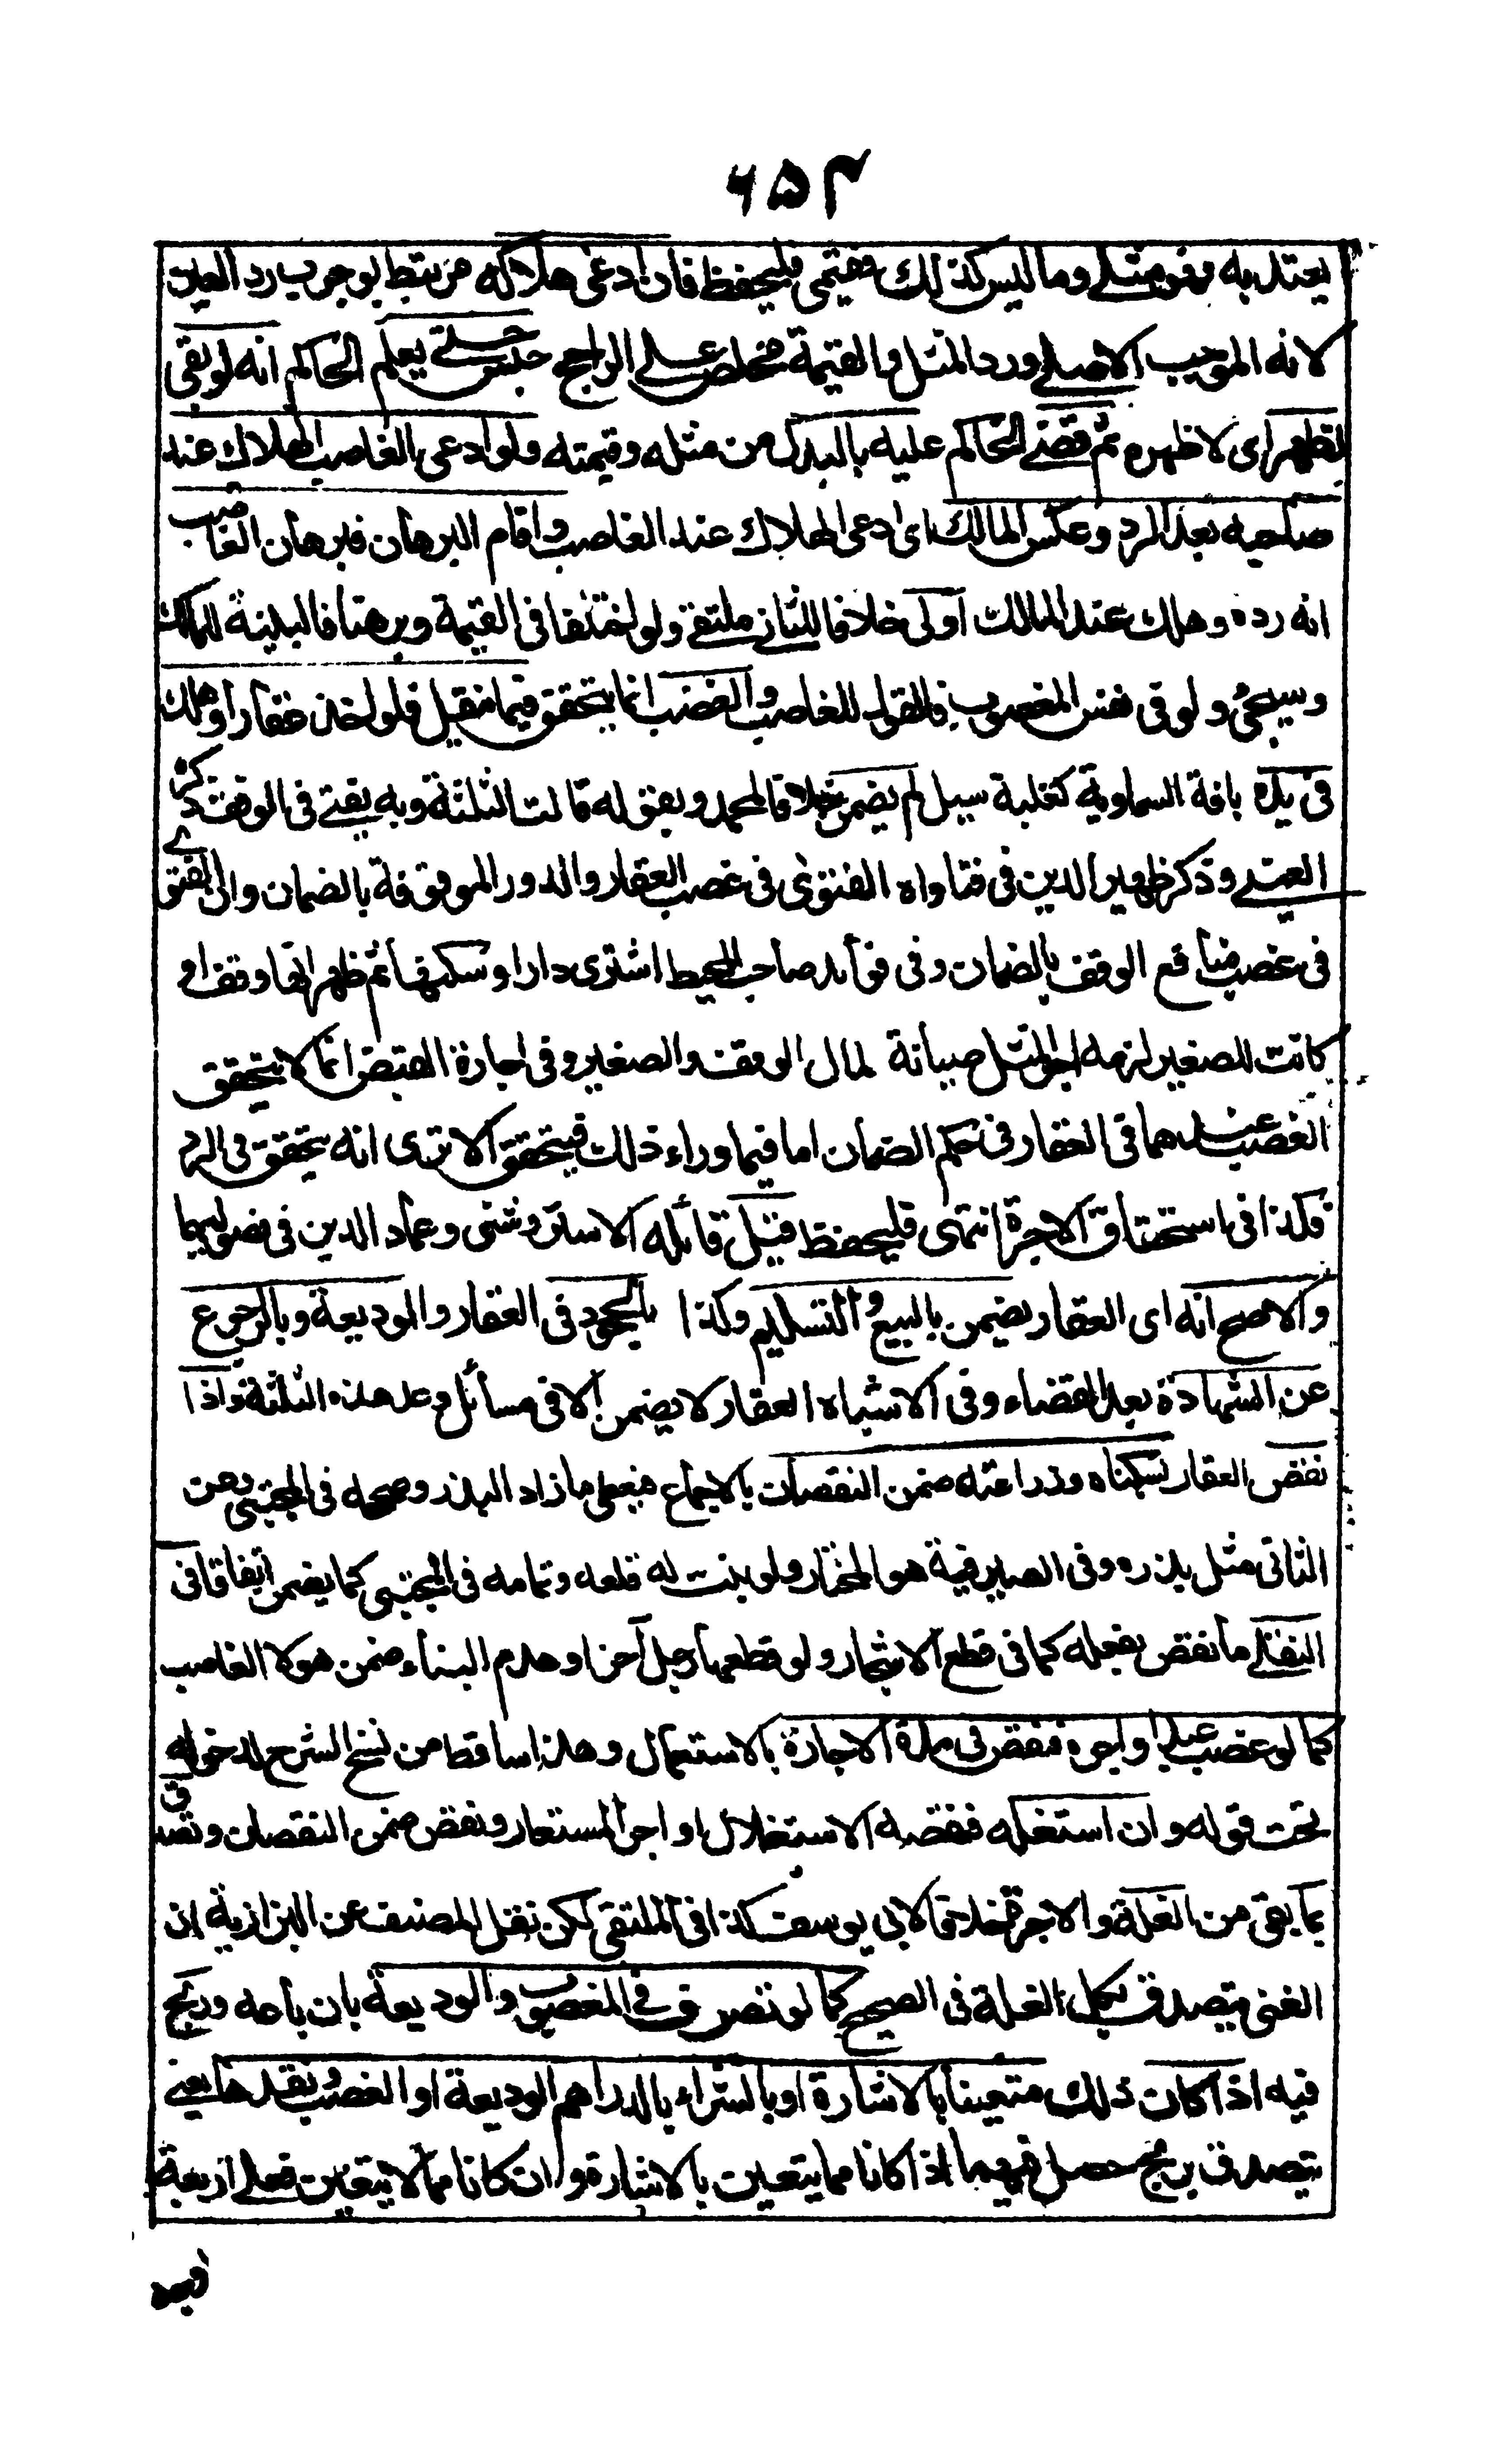 ۶۵۳
يعتد به فهو مثلى وما ليس كذلك فقيمى فليحفظ فان ادعى هلاكه مرتبط بوجوب رد العين
لانه الموجب الاصلى ورد المثل والقيمة مخلص على الراجح حبس حتى يعلم الحاكم انه لو بقى
لظهر اى لاظهره ثم قضى الحاكم عليه بالبدل من مثله وقيمته ولو ادعى الغاصب الهلاك عند
صاحبه بعد الرد وعكس المالك اى ادعى الهلاك عند الغاصب واقام البرهان فبرهان الغاصب
انه رده وهلك عند المالك اولى خلافا للثانى ملتقى ولو اختلفا فى القيمة وبرهنا فالبينة للمالك
وسيجئ ولو فى نفس المغصوب فالقول للغاصب والغصب انما يتحقق فيما ينقل فلو اخذ عقارا وهلك
فى يده بافة السماوية كغلبة سيل لم يضمن خلافا لمحمد وبقوله قالت الثلثة وبه يفتى فى الوقف ذكره
العينى وذكر ظهير الدين فى فتاواه الفتوى فى غصب العقار والدور الموقوفة بالضمان وان الفتوى
فى غصب منافع الوقف بالضمان وفى فوائد صاحب المحيط اشترى دارا وسكنها ثم ظهر انها وقف او
كانت للصغير لزمه اجر المثل صيانة لمال الوقف والصغير وفى اجارة القبض انما لا يتحقق
الغصب عندهما فى العقار فى حكم الضمان اما فيما وراء ذلك فيتحقق الا ترى انه يتحقق فى الرد
فكذا فى استحقاق الاجرة انتهى فليحفظ قيل قائله الاستروشنى وعماد الدين فى فصوليهما
والاصح انه اى العقار يضمن بالبيع والتسليم وكذا بالجحود فى العقار والوديعة وبالرجوع
عن الشهادة بعد القضاء وفى الاشباه العقار لا يضمن الا فى مسائل وعد هذه الثلثة واذا
نقض العقار بسكناه وزراعته ضمن النقصان بالاجماع فيعطى ما زاد البذر وصححه فى المجتبى وعن
الثانى مثل بذره وفى الصيرفية هو المختار ولو بنت له قلعه وتمامه فى المجتبى كما يضمن اتفاقا فى
النقلى ما نقض بفعله كما فى قطع الاشجار ولو قطعها رجل آخر او هدم البناء ضمن هو لا الغاصب
كما لو غصب عبدا واجره فنقض فى مدة الاجارة بالاستعمال وهذا ساقط من نسخ الشرح لدخوله
تحت قوله وان استغله فنقصه الاستغلال او اجر المستعار ونقض ضمن النقصان وتصدق
بما بقى من الغلة والاجرة خلافا لابى يوسف كذا فى الملتقى لكن نقل المصنف عن البزازية ان
الغنى يتصدق بكل الغلة فى الصحيح كما لو تصرف فى المغصوب والوديعة بان باعه وربح
فيه اذا كان ذلك متعينا بالاشارة او بالشراء بالدراهم الوديعة او الغصب ونقدها يعنى
يتصدق بربح حصل فيهما اذا كانا مما يتعين بالاشارة وان كانا مما لا يتعين فعلى اربعة